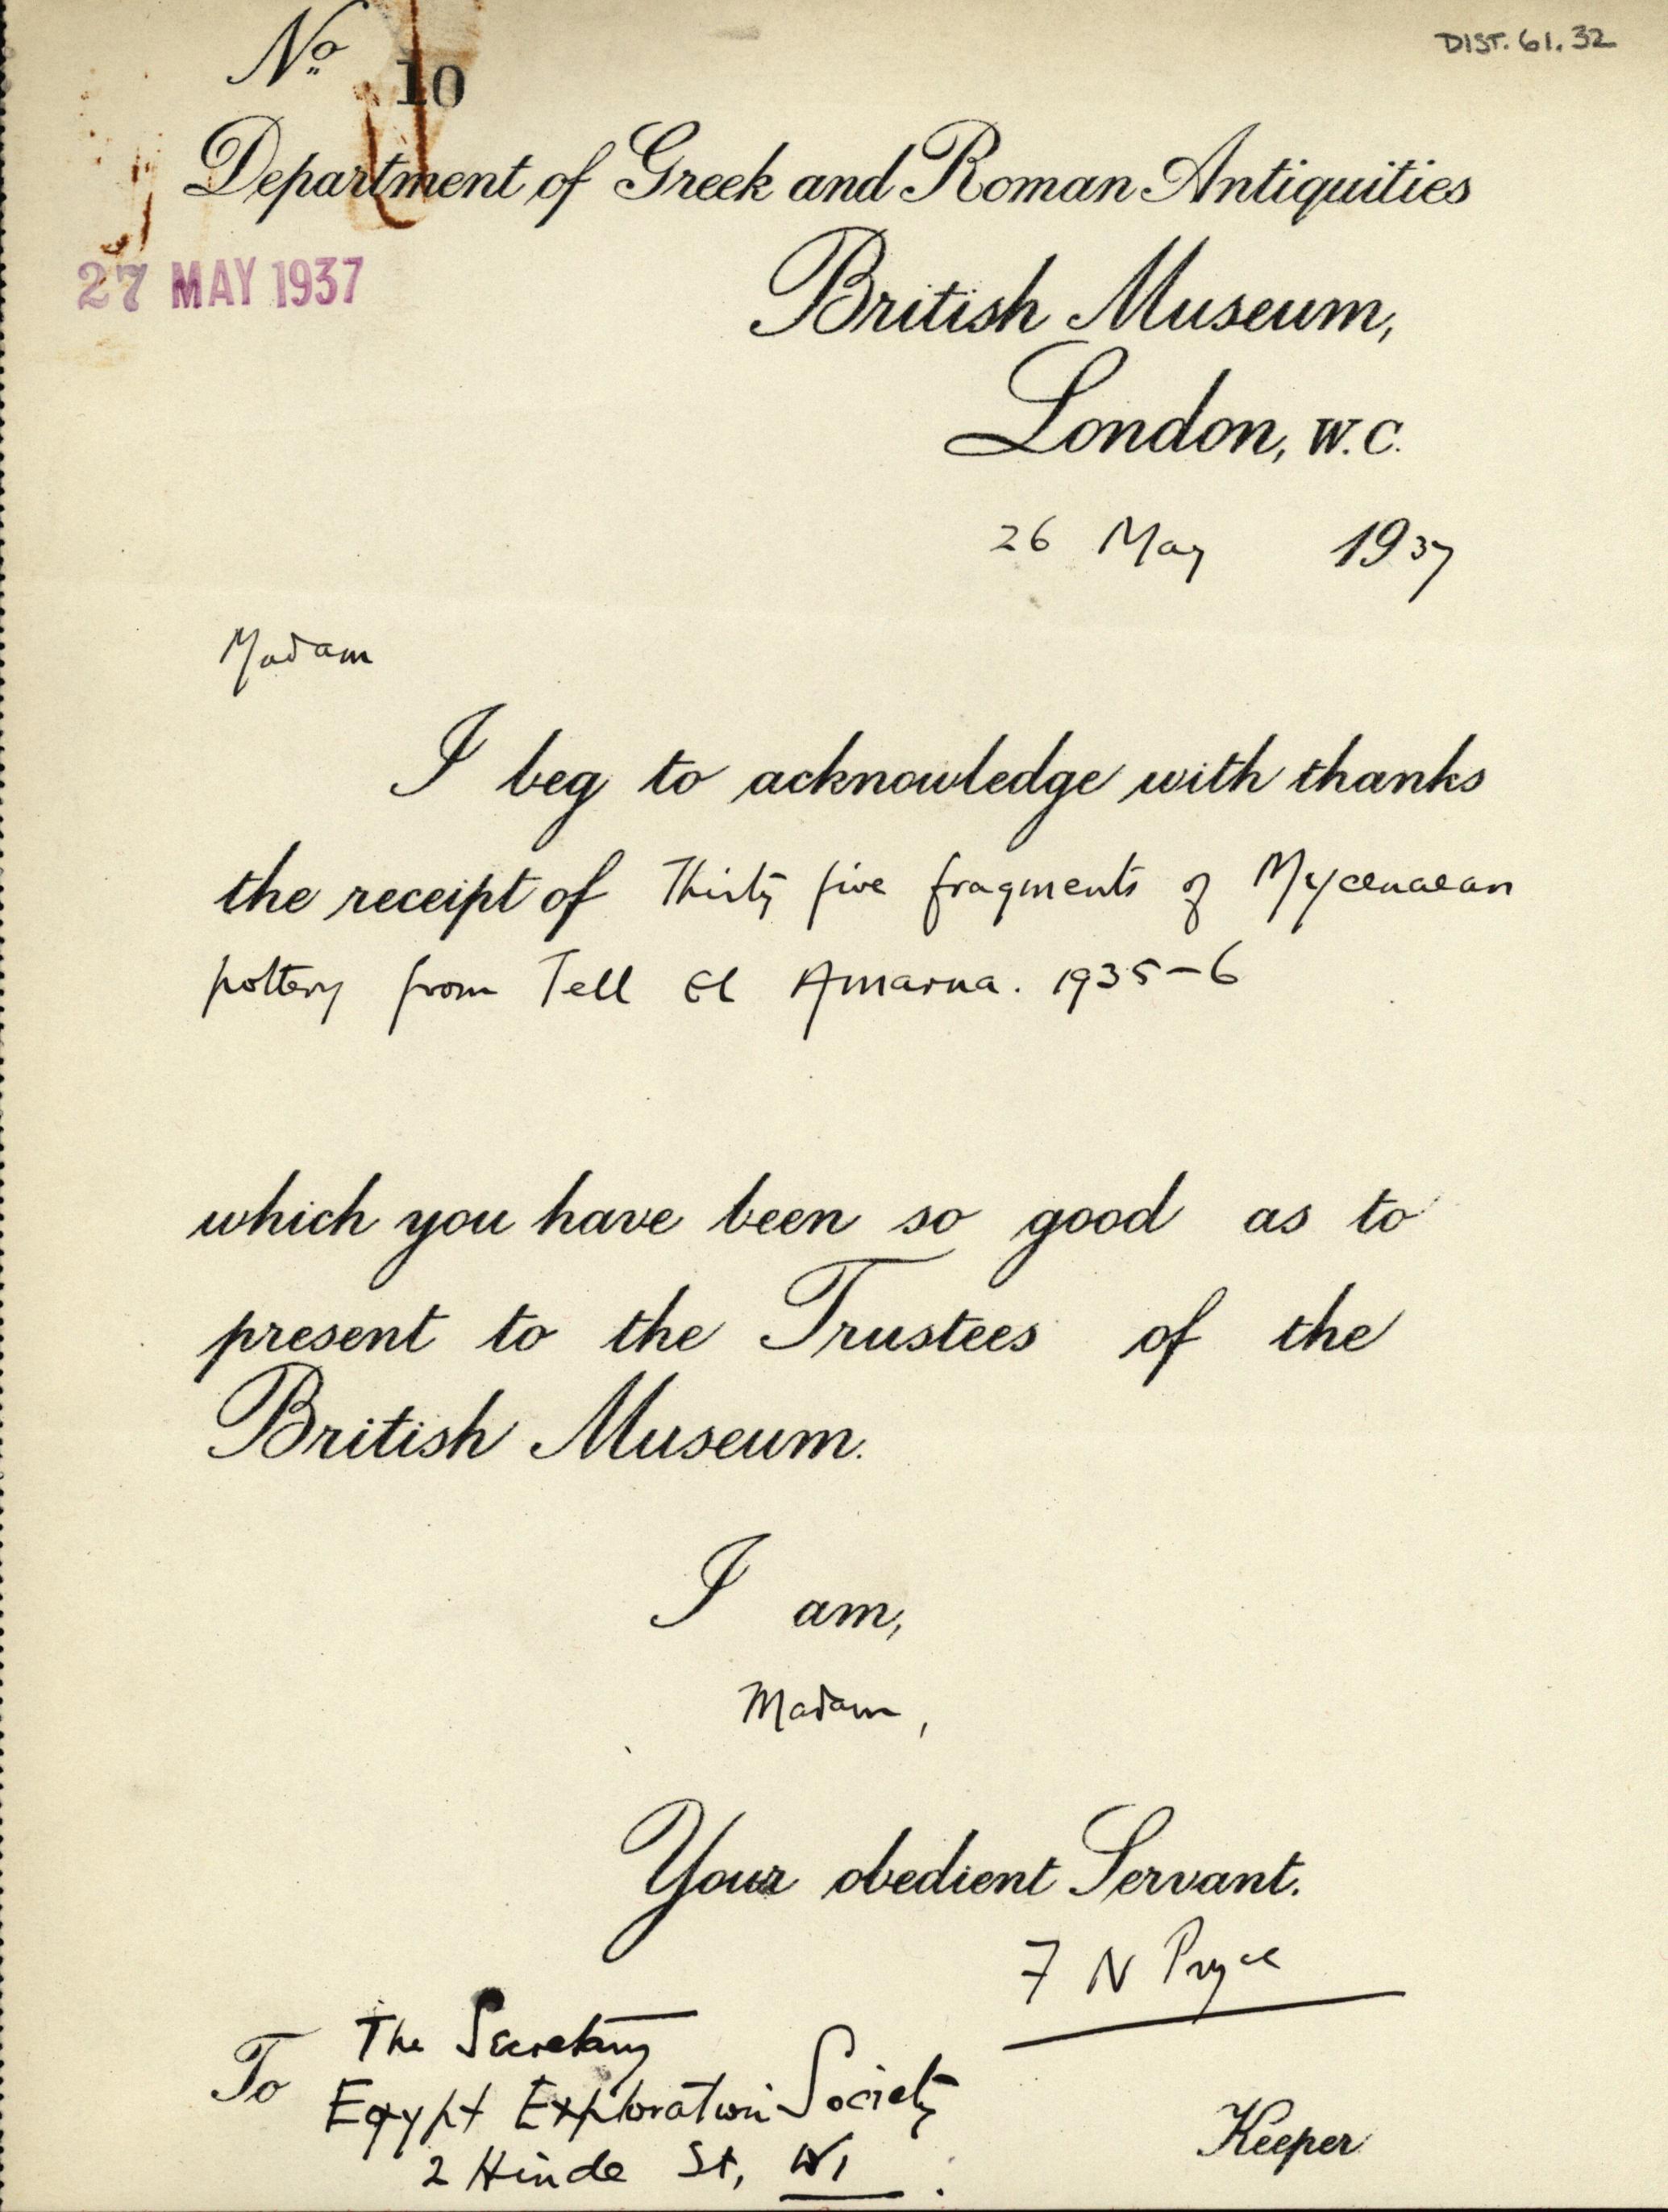 DIST. 61. 32
No 10
Department of Greek and Roman Antiquities
27 MAY 1937
British Museum,
London, W.C.
26 May 1937
Madam
I beg to acknowledge with thanks
the receipt of Thirty five fragments of Mycenaean
pottery from Tell El Amarna. 1935-6
which you have been so good as to
present to the Trustees of the
British Museum.
I am,
Madam,
Your obedient Servant.
F N Pryce
To The Secretary
Egypt Exploration Society
2 Hinde St, W1.
Keeper